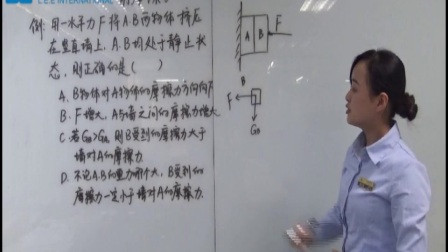 LEE INTERNATIONAL
例: 用一水平力F将A.B两物体挤压
在竖直墙上, A.B均处于静止状
态, 则正确的是( )
A. B物体对A物体的摩擦力方向向下
B. F增大, A与墙之间的摩擦力增大
C. 若GB>GA, 则B受到的摩擦力大于
墙对A的摩擦力.
D. 不论A.B的重力哪个大, B受到的
摩擦力一定小于墙对A的摩擦力.
A B F
B
F
GB